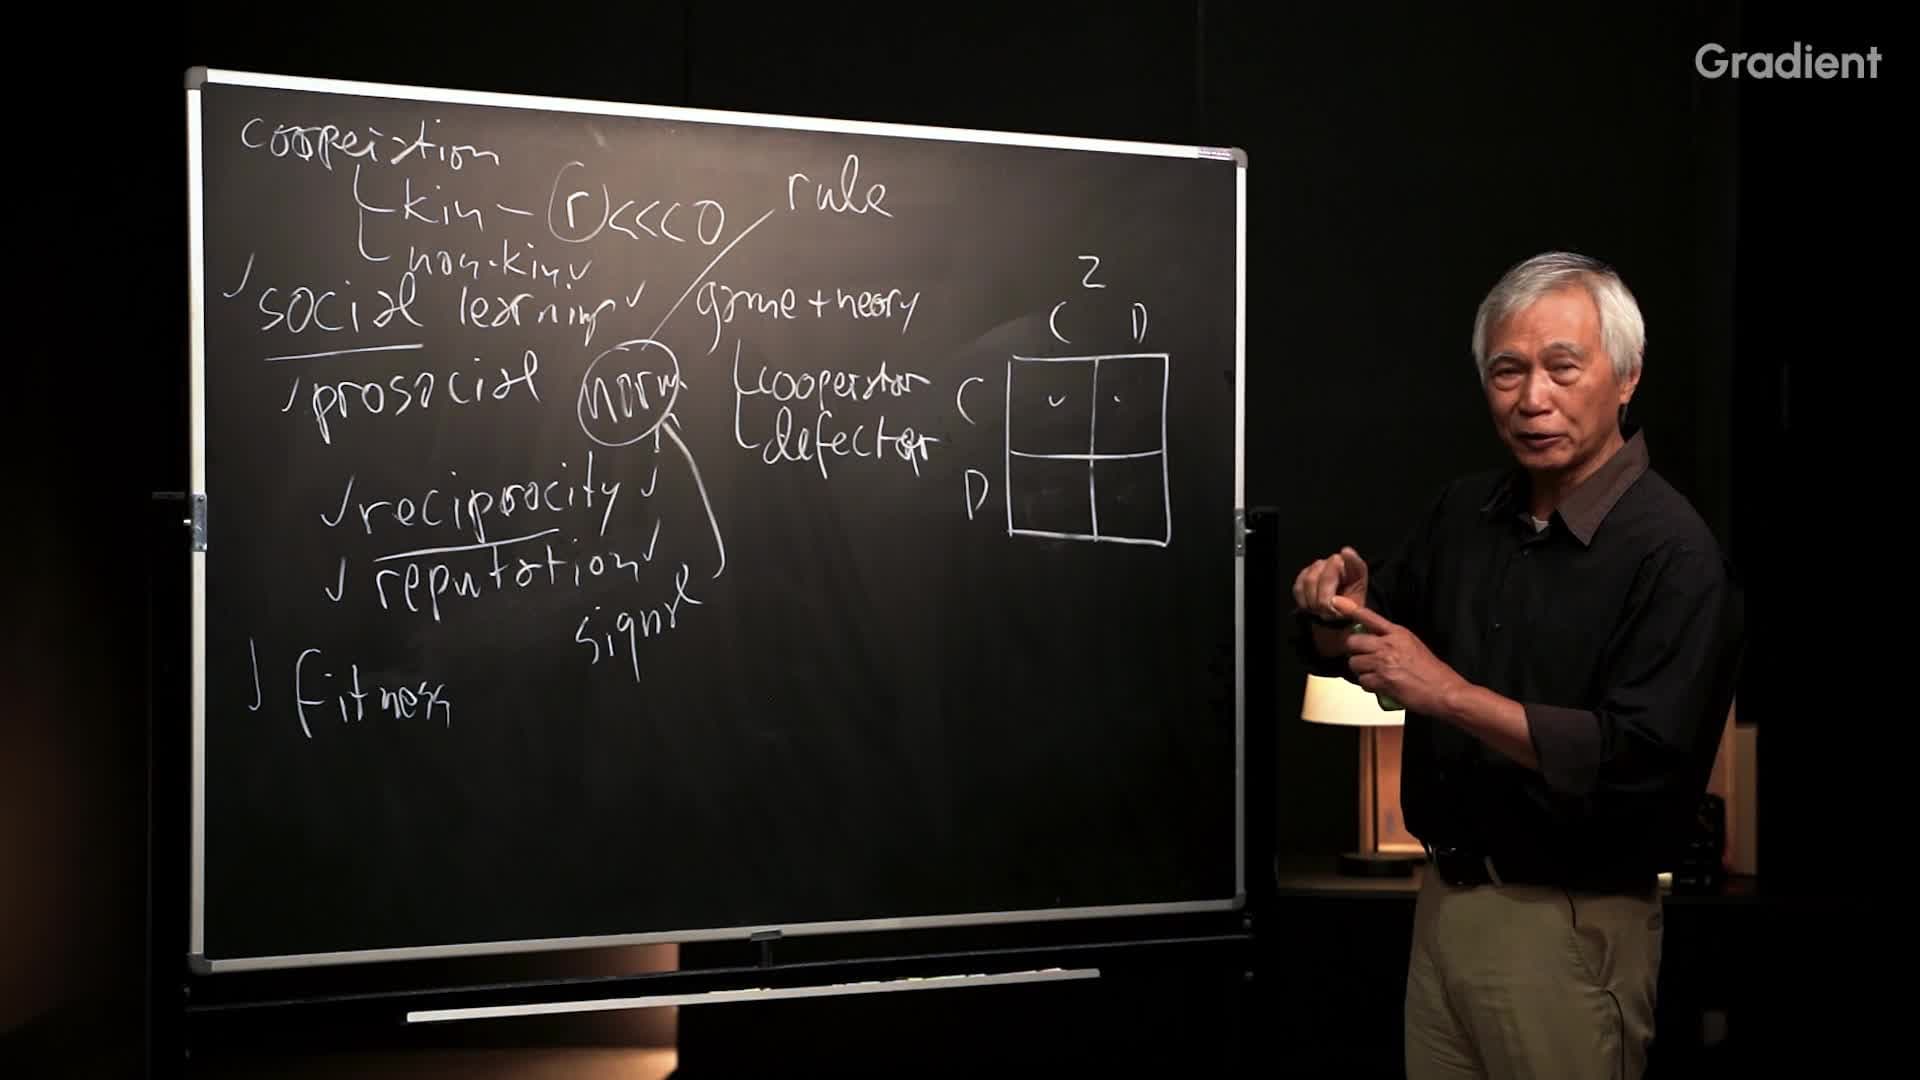 Gradient
cooperation
kin - r <<< 0
non-kin
rule
social learning
prosocial
norm
reciprocity
reputation
signal
fitness
game theory
cooperator
defector
2
C D
C
D